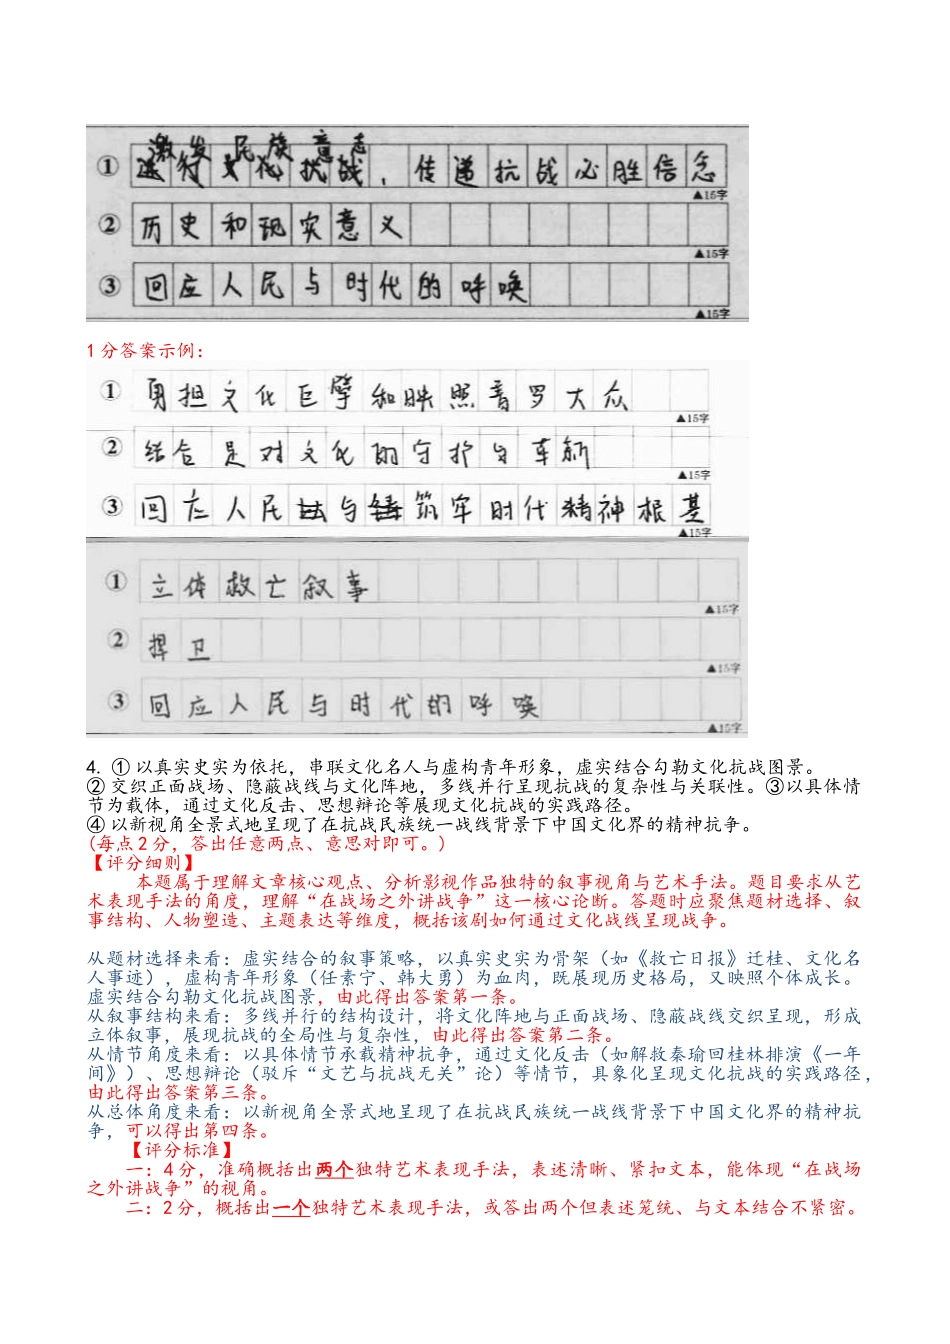 激发民族意志
① 进行文化抗战，传递抗战必胜信念
▲15字
② 历史和现实意义
▲15字
③ 回应人民与时代的呼唤
▲15字
1 分答案示例：
① 勇担文化巨擘和映照普罗大众
▲15字
② 结合是对文化的守护与革新
▲15字
③ 回应人民与筑牢时代精神根基
▲15字
① 立体救亡叙事
▲15字
② 捍卫
▲15字
③ 回应人民与时代的呼唤
▲15字
4. ① 以真实史实为依托，串联文化名人与虚构青年形象，虚实结合勾勒文化抗战图景。
② 交织正面战场、隐蔽战线与文化阵地，多线并行呈现抗战的复杂性与关联性。③以具体情
节为载体，通过文化反击、思想辩论等展现文化抗战的实践路径。
④ 以新视角全景式地呈现了在抗战民族统一战线背景下中国文化界的精神抗争。
(每点 2 分，答出任意两点、意思对即可。)
【评分细则】
本题属于理解文章核心观点、分析影视作品独特的叙事视角与艺术手法。题目要求从艺
术表现手法的角度，理解“在战场之外讲战争”这一核心论断。答题时应聚焦题材选择、叙
事结构、人物塑造、主题表达等维度，概括该剧如何通过文化战线呈现战争。
从题材选择来看：虚实结合的叙事策略，以真实史实为骨架（如《救亡日报》迁桂、文化名
人事迹），虚构青年形象（任素宁、韩大勇）为血肉，既展现历史格局，又映照个体成长。
虚实结合勾勒文化抗战图景，由此得出答案第一条。
从叙事结构来看：多线并行的结构设计，将文化阵地与正面战场、隐蔽战线交织呈现，形成
立体叙事，展现抗战的全局性与复杂性，由此得出答案第二条。
从情节角度来看：以具体情节承载精神抗争，通过文化反击（如解救秦瑜回桂林排演《一年
间》）、思想辩论（驳斥“文艺与抗战无关”论）等情节，具象化呈现文化抗战的实践路径，
由此得出答案第三条。
从总体角度来看：以新视角全景式地呈现了在抗战民族统一战线背景下中国文化界的精神抗
争，可以得出第四条。
【评分标准】
一：4 分，准确概括出两个独特艺术表现手法，表述清晰、紧扣文本，能体现“在战场
之外讲战争”的视角。
二：2 分，概括出一个独特艺术表现手法，或答出两个但表述笼统、与文本结合不紧密。